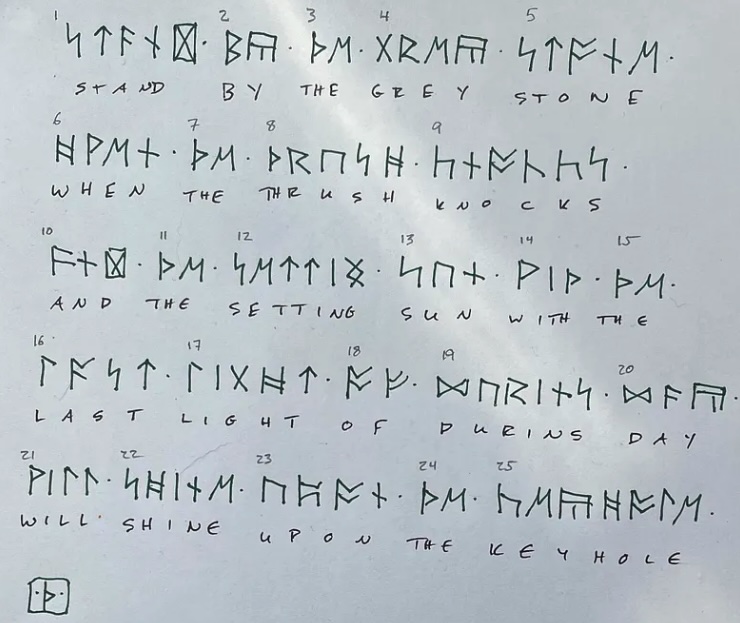 1 2 3 4 5
ᛋᛏᚫᚾᛞ᛫ᛒᚣ᛫ᚦᛖ᛫ᚷᚱᛖᚣ᛫ᛋᛏᚩᚾᛖ᛫
STAND BY THE GREY STONE
6 7 8 9
ᚻᚹᛖᚾ᛫ᚦᛖ᛫ᚦᚱᚢᛋᚻ᛫ᚳᚾᚩᚳᚳᛋ᛫
WHEN THE THRUSH KNOCKS
10 11 12 13 14 15
ᚫᚾᛞ᛫ᚦᛖ᛫ᛋᛖᛏᛏᛁᛝ᛫ᛋᚢᚾ᛫ᚹᛁᚦ᛫ᚦᛖ᛫
AND THE SETTING SUN WITH THE
16 17 18 19 20
ᛚᚫᛋᛏ᛫ᛚᛁᚷᚻᛏ᛫ᚩᚠ᛫ᛞᚢᚱᛁᚾᛋ᛫ᛞᚫᚣ᛫
LAST LIGHT OF DURINS DAY
21 22 23 24 25
ᚹᛁᛚᛚ᛫ᛋᚻᛁᚾᛖ᛫ᚢᛈᚩᚾ᛫ᚦᛖ᛫ᚳᛖᚣᚻᚩᛚᛖ᛫
WILL SHINE UPON THE KEYHOLE
᛫ᚦ᛫